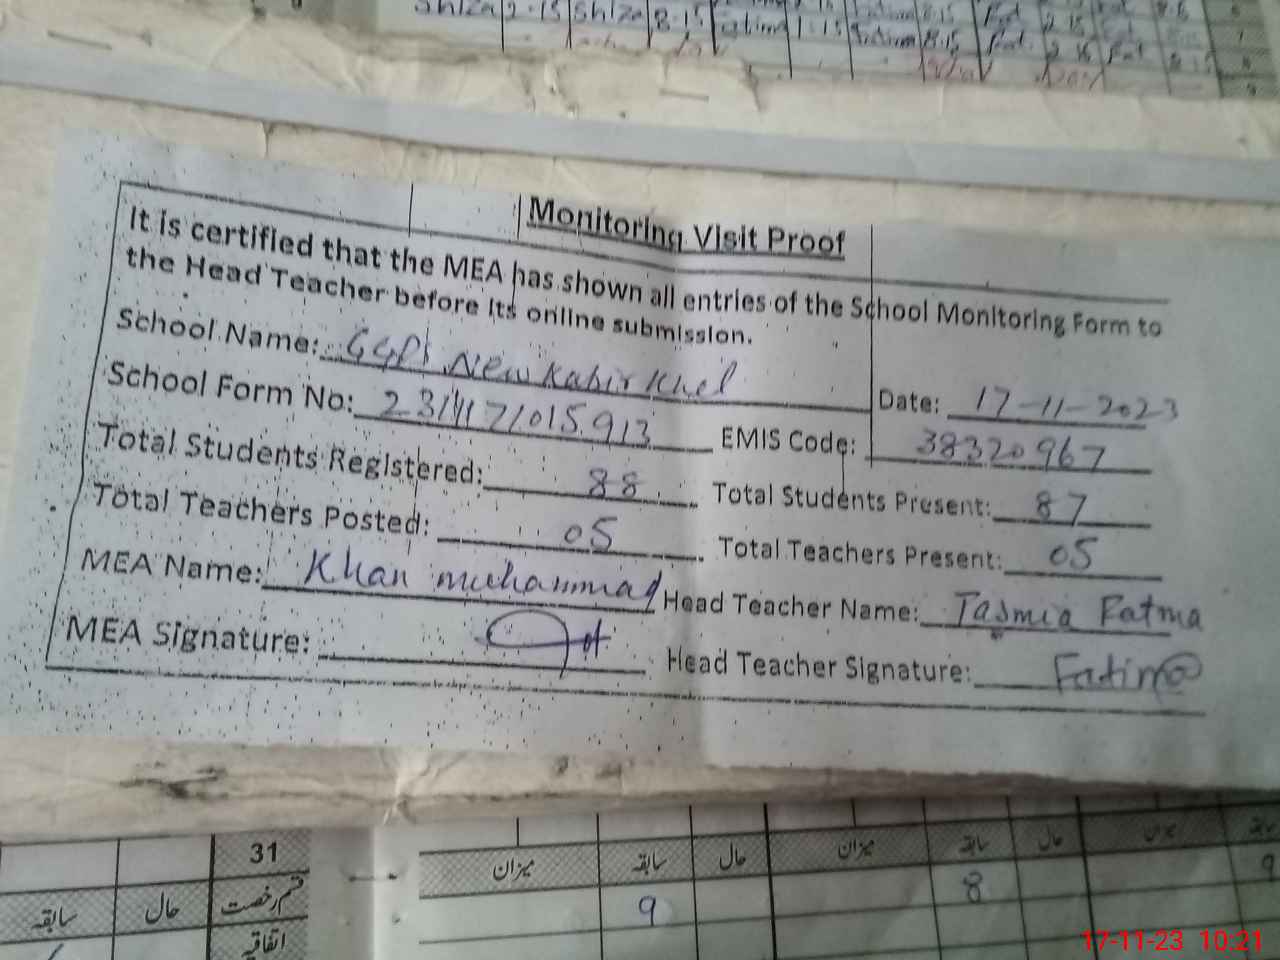 Shiza 2.15 Shiza 8.15 Fatima 1.15 Fatima 8.15 Fat. 2.15 Fat
Monitoring Visit Proof
It is certified that the MEA has shown all entries of the School Monitoring Form to
the Head Teacher before its online submission.
School Name: GGPS New Kabir Khel
Date: 17-11-2023
School Form No: EMIS Code: 38320967
Total Students Registered: 88 Total Students Present: 87
Total Teachers Posted: 05 Total Teachers Present: 05
MEA Name: Khan muhammad Head Teacher Name: Tasmia Fatma
MEA Signature: Head Teacher Signature: Fatima
31
میزان سابقہ حال میزان سابقہ حال میزان سابقہ
سابقہ حال قسم رخصت
9 8 9
اتفاقیہ
17-11-23 10:21